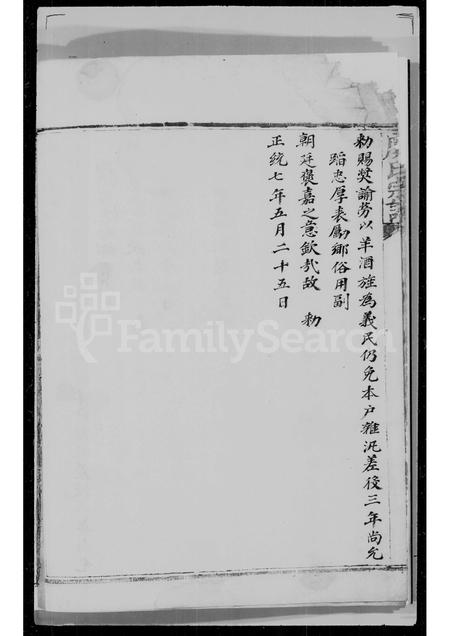 勑賜奬諭勞以羊酒旌為義民仍免本户雜泛差役三年尚允
蹈忠厚表勵鄉俗用副
朝廷褒嘉之意欽哉故 勑
正統七年五月二十五日
氏宗譜
FamilySearch